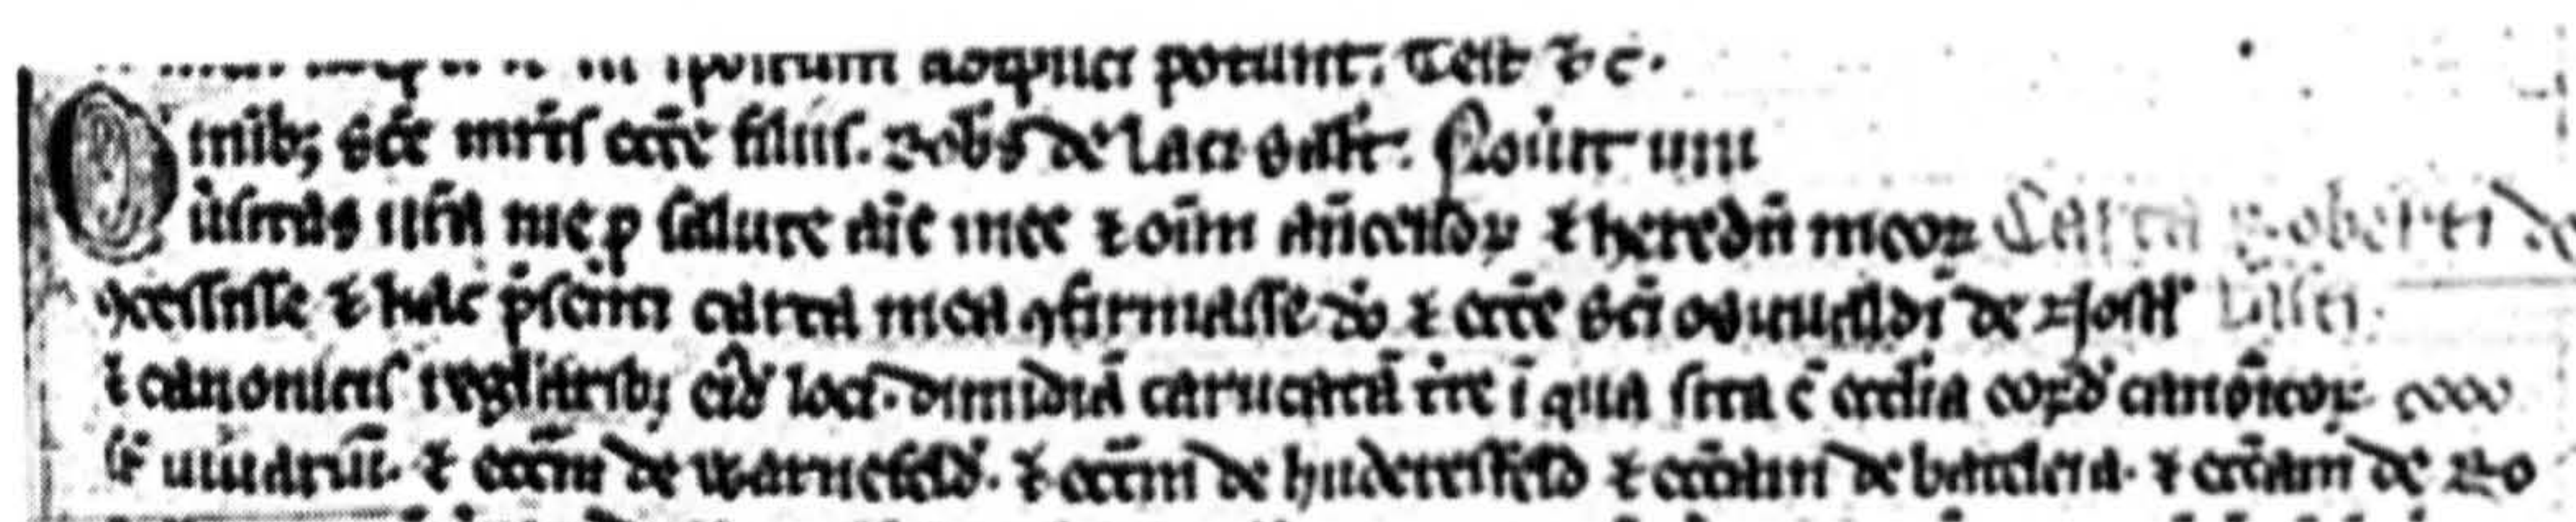 adquiri potuint. Test. &c.
Omib; sce mr̃is eccłe filiis. Rob̃s de Laci salt̃. Nov̾it uni
v̾sitas vr̃a me p salute aĩe mee ⁊ oĩm añcessoꝝ ⁊ heredũ meoꝝ Carta Roberti de
ꝯcessisse ⁊ hac p̃senti carta mea ꝯfirmasse do ⁊ eccłe sc̃i osuualdi de Nostł Lasci.
⁊ canonicis reglarib; eid̾ loci. dimidiã carucatã tr̃e ĩ qua sita ẽ ecclia eoꝝd̾ canõicoꝝ
uiuariũ. ⁊ eccłm de Warnefeld̾. ⁊ eccłm de huderesfeld ⁊ eccłam de bateleia. ⁊ eccłam de Ro